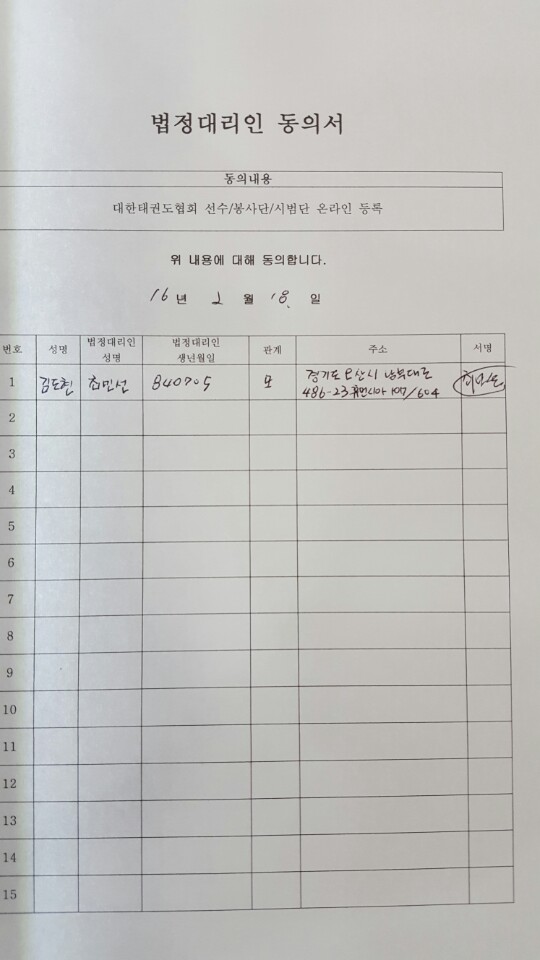 법정대리인 동의서
동의내용
대한태권도협회 선수/봉사단/시범단 온라인 등록
위 내용에 대해 동의합니다.
16 년 2 월 18. 일
번호 성명 법정대리인 성명 법정대리인 생년월일 관계 주소 서명
1 김도헌 최민선 840705 모 경기도 오산시 남부대로
486-23 휴먼시아 107/604
2
3
4
5
6
7
8
9
10
11
12
13
14
15